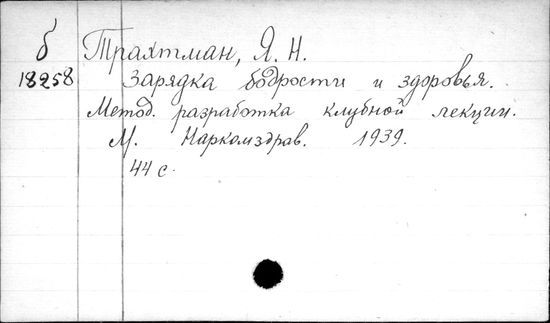 б Трахтман, Я. Н.
18258 Зарядка бодрости и здоровья.
Метод. разработка клубной лекции.
М. Наркомздрав. 1939.
44 с.